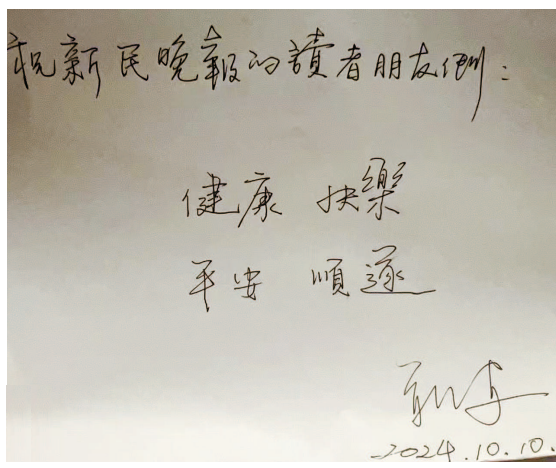 祝新民晚報的讀者朋友們：
健康 快樂
平安 順遂
2024.10.10.